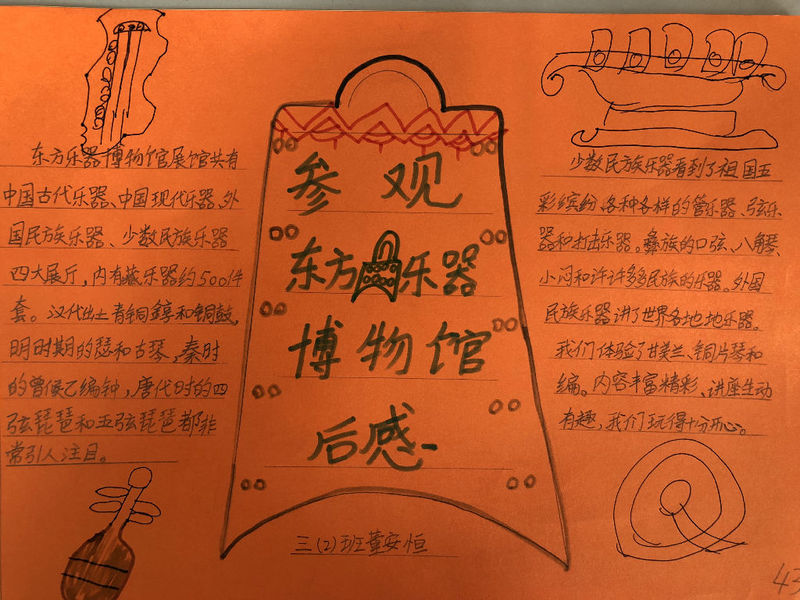 东方乐器博物馆展馆共有
中国古代乐器、中国现代乐器、外
国民族乐器、少数民族乐器
四大展厅，内有藏乐器约500件
套。汉代出土青铜錞和铜鼓，
明时期的瑟和古琴，秦时
的曾侯乙编钟，唐代时的四
弦琵琶和五弦琵琶都非
常引人注目。
参观
东方乐器
博物馆
后感
三(2)班董安恒
少数民族乐器看到了祖国五
彩缤纷、各种各样的管乐器、弦乐
器和打击乐器。彝族的口弦、八角琴、
小闷和许许多多民族的乐器。外国
民族乐器讲了世界各地地乐器。
我们体验了甘美兰、铜片琴和
编。内容丰富精彩、讲座生动
有趣，我们玩得十分开心。
43